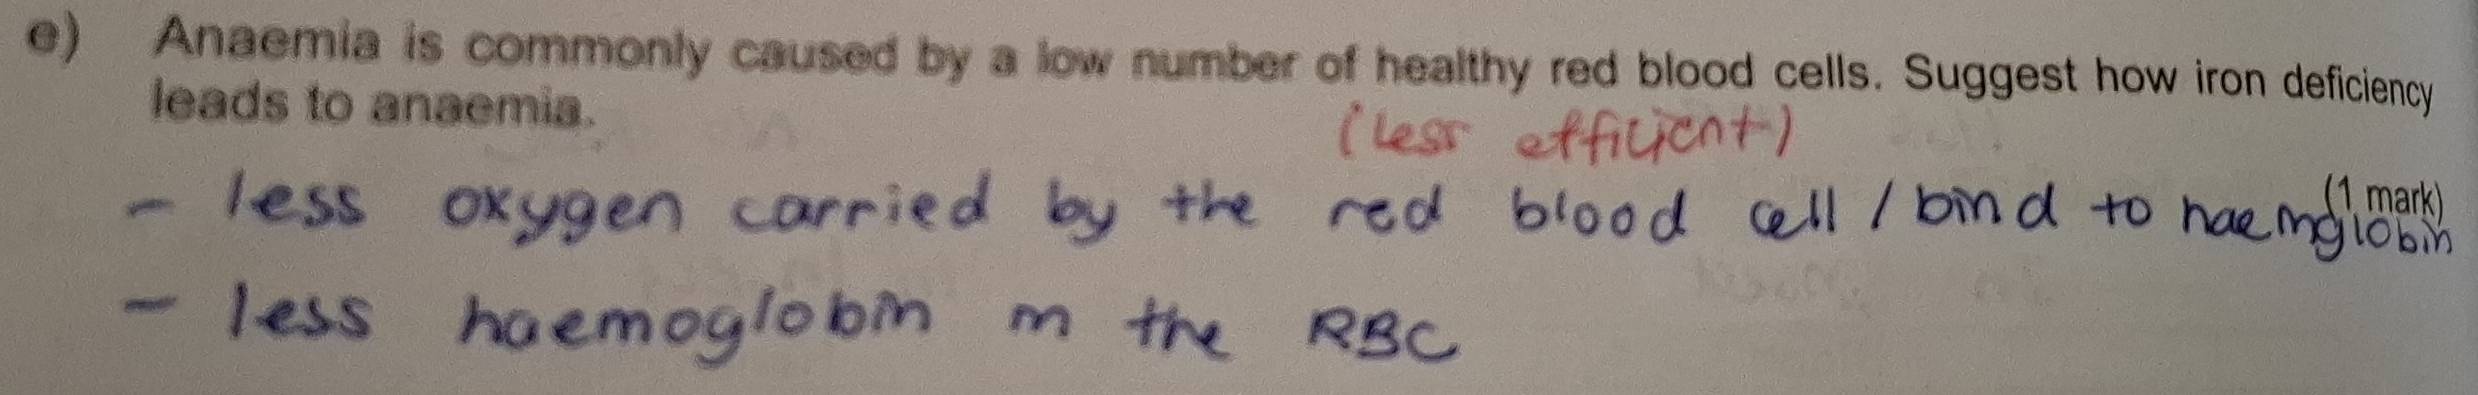 e) Anaemia is commonly caused by a low number of healthy red blood cells. Suggest how iron deficiency
leads to anaemia.
(less efficient)
(1 mark)
- less oxygen carried by the red blood cell / bind to haemglobin
- less haemoglobin in the RBC